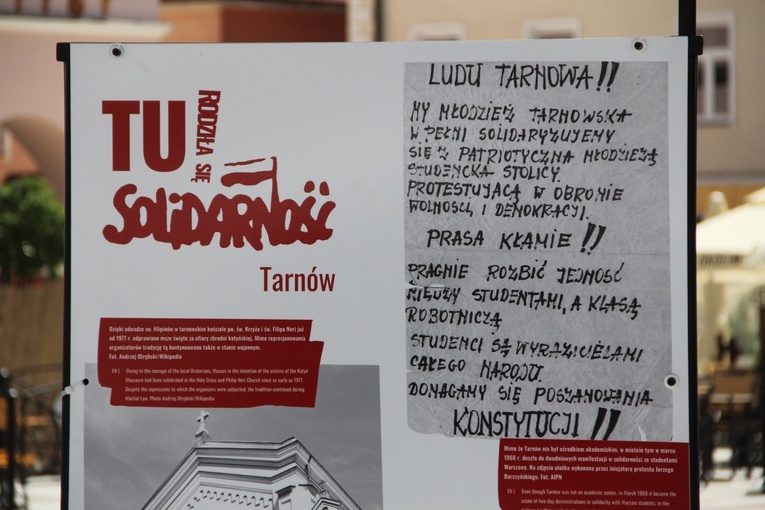 TU RODZIŁA SIĘ
SOLIDARNOŚĆ
Tarnów
Dzięki odwadze oo. filipinów w tarnowskim kościele pw. św. Krzyża i św. Filipa Neri już
od 1977 r. odprawiano msze święte za ofiary zbrodni katyńskiej. Mimo represjonowania
organizatorów tradycję tą kontynuowano także w stanie wojennym.
Fot. Andrzej Otrębski/Wikipedia
EN | Owing to the courage of the local Oratorians, Masses in the intention of the victims of the Katyń
Massacre had been celebrated in the Holy Cross and Philip Neri Church since as early as 1977.
Despite the repressions to which the organisers were subjected, the tradition continued during
Martial Law. Photo Andrzej Otrębski/Wikipedia
LUDU TARNOWA!!
MY MŁODZIEŻ TARNOWSKA
W PEŁNI SOLIDARYZUJEMY
SIĘ Z PATRIOTYCZNA MŁODZIEŻĄ
STUDENCKA STOLICY.
PROTESTUJĄCĄ W OBRONIE
WOLNOŚCI, I DEMOKRACJI.
PRASA KŁAMIE!!
PRAGNIE ROZBIĆ JEJNOŚĆ
MIĘDZY STUDENTAMI, A KLASĄ
ROBOTNICZĄ
STUDENCI SĄ WYRAZICIELAMI
CAŁEGO NARODU.
DOMAGAMY SIĘ POSZANOWANIA
KONSTYTUCJI!!
Mimo że Tarnów nie był ośrodkiem akademickim, w mieście tym w marcu
1968 r. doszło do dwudniowych manifestacji w solidarności ze studentami
Warszawy. Na zdjęciu ulotka wykonana przez inicjatora protestu Jerzego
Fot. AIPN
EN | Even though Tarnów was not an academic center, in March 1968 it became the
scene of two-day demonstrations in solidarity with Warsaw students. In the